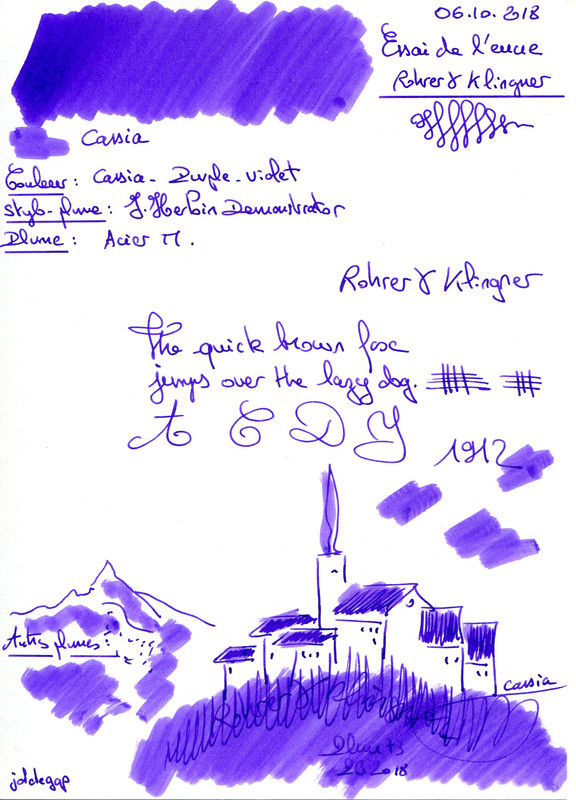 06.10.2018
Essai de l'encre
Rohrer & Klingner
Cassia
Couleur : Cassia - Purple - violet
Stylo-plume : J. Herbin Demonstrator
Plume : Acier M.
Rohrer & Klingner
The quick brown fox
jumps over the lazy dog.
A C D Y
1912
Autres plumes :
Cassia
Rohrer & Klingner
2018
joldegap